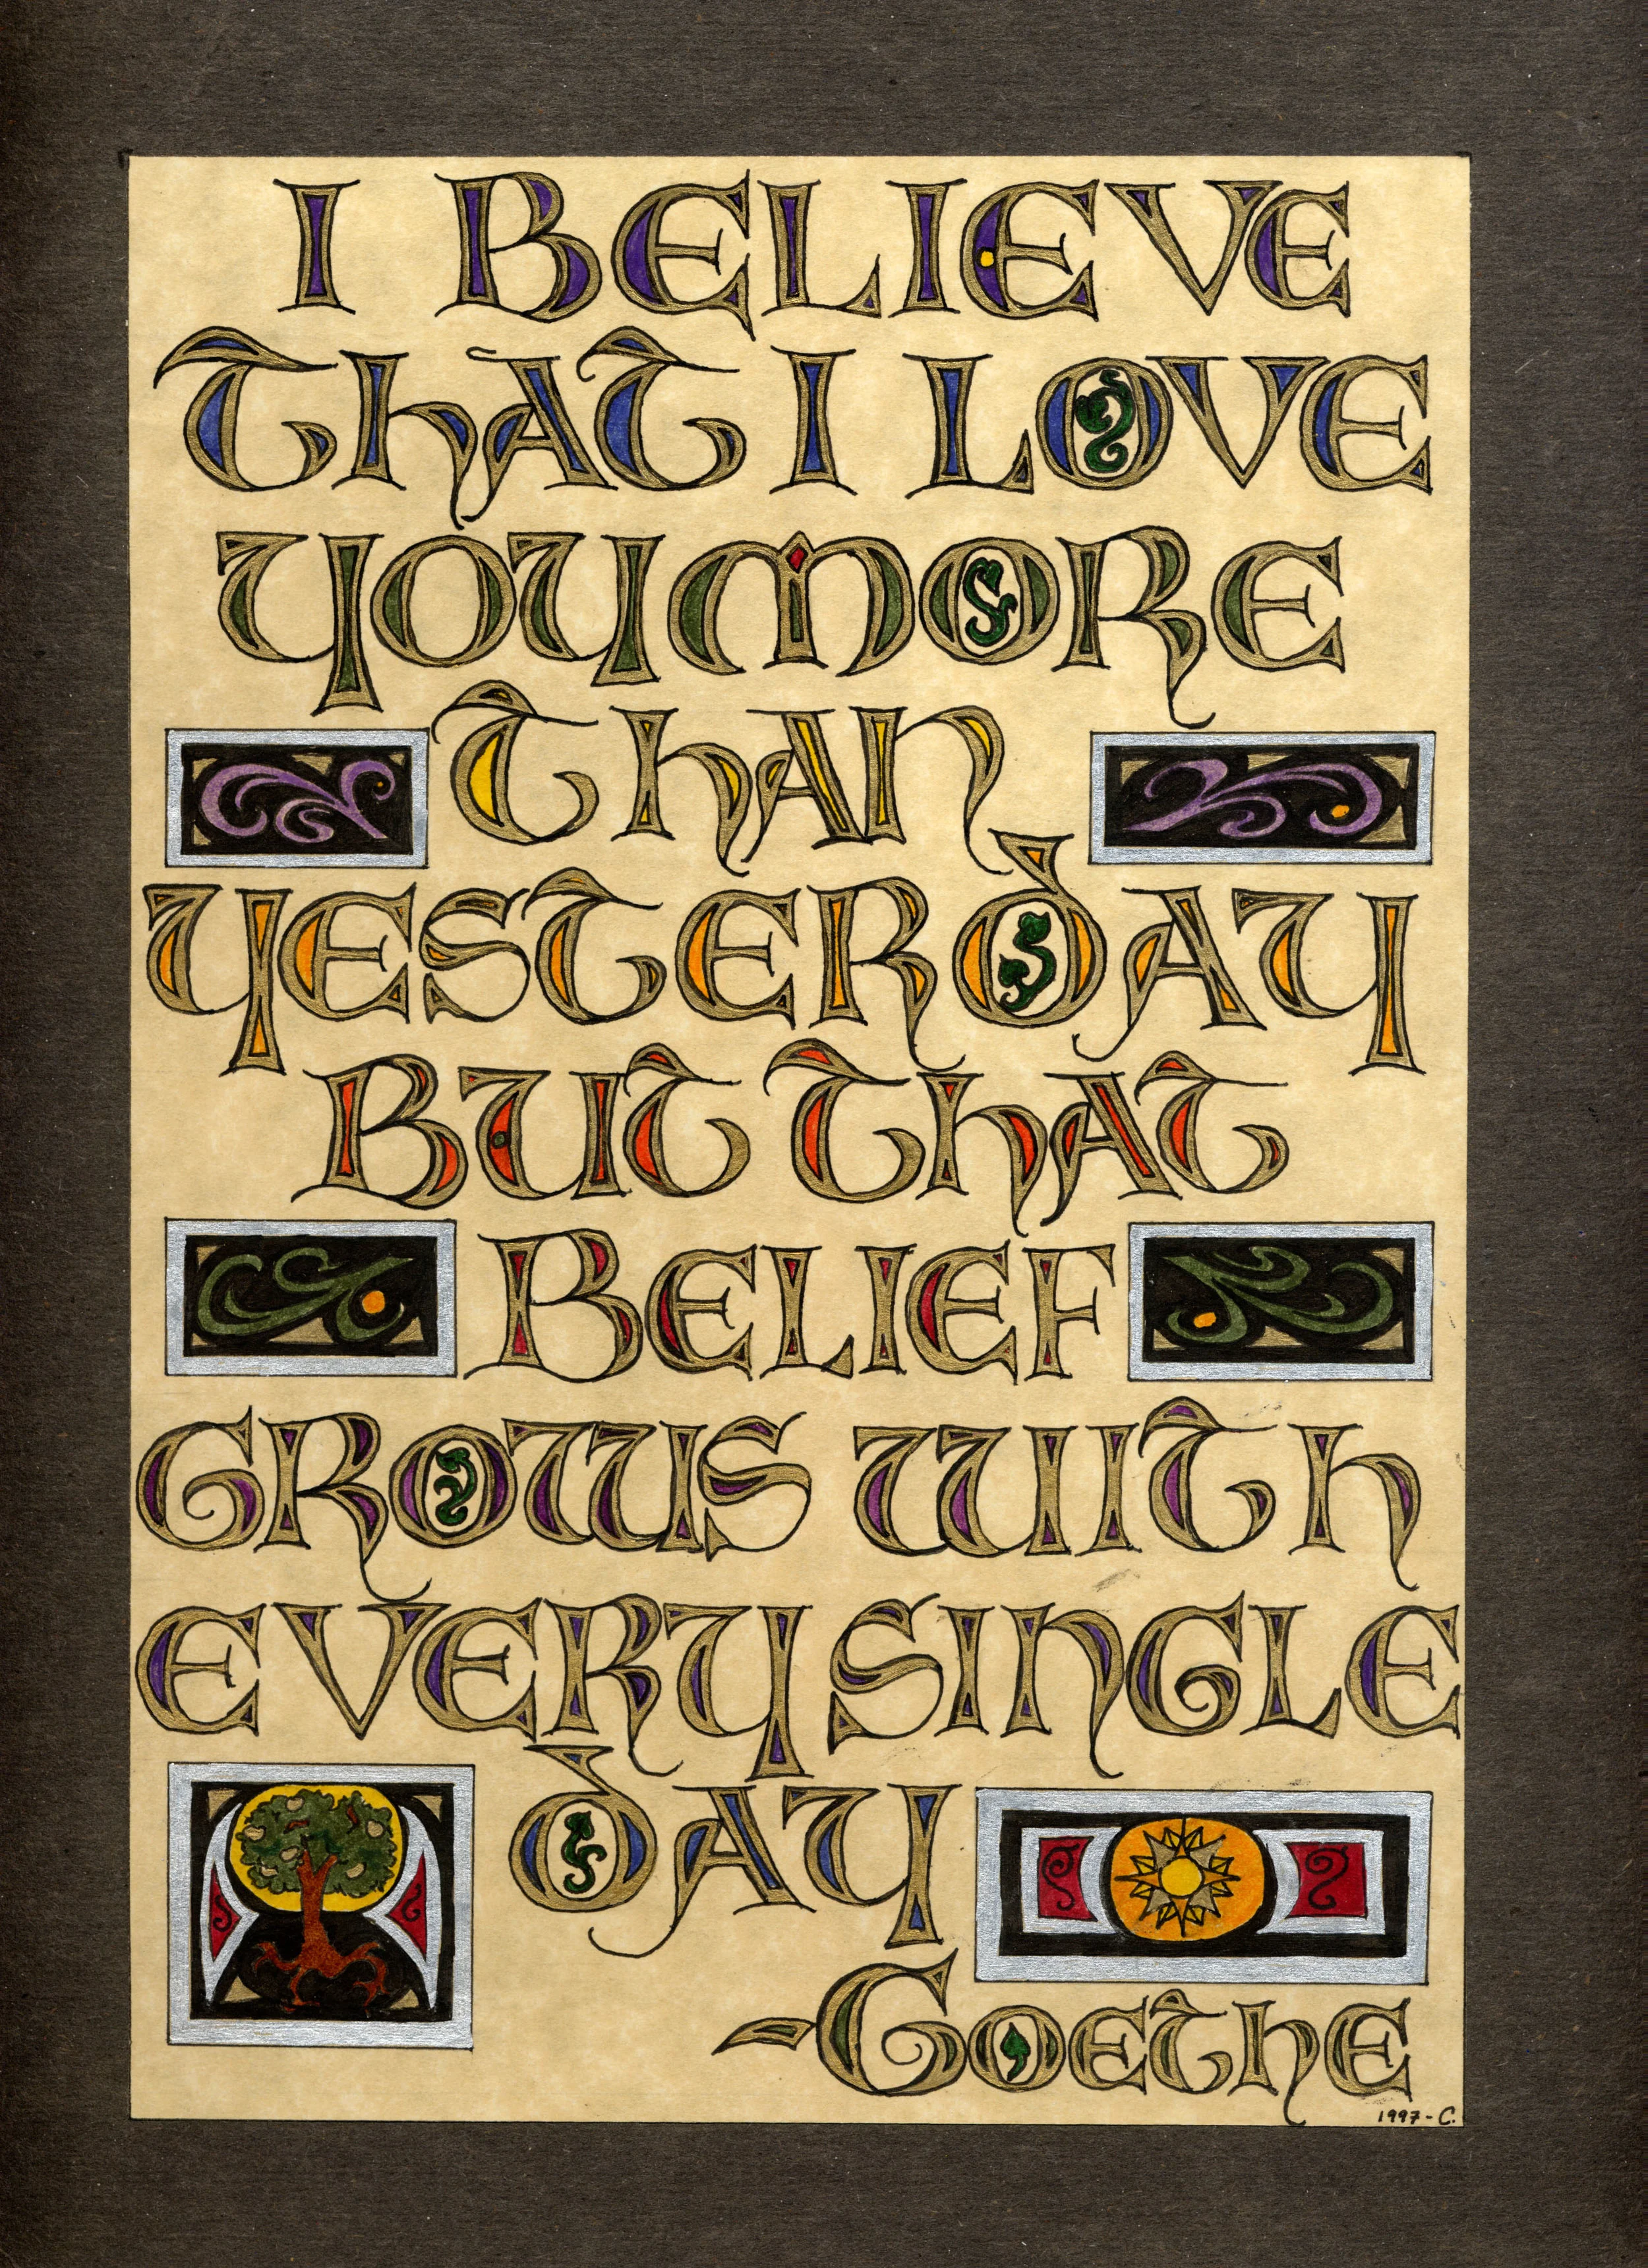 I BELIEVE
THAT I LOVE
YOU MORE
THAN
YESTERDAY
BUT THAT
BELIEF
GROWS WITH
EVERY SINGLE
DAY
-GOETHE
1997-C.